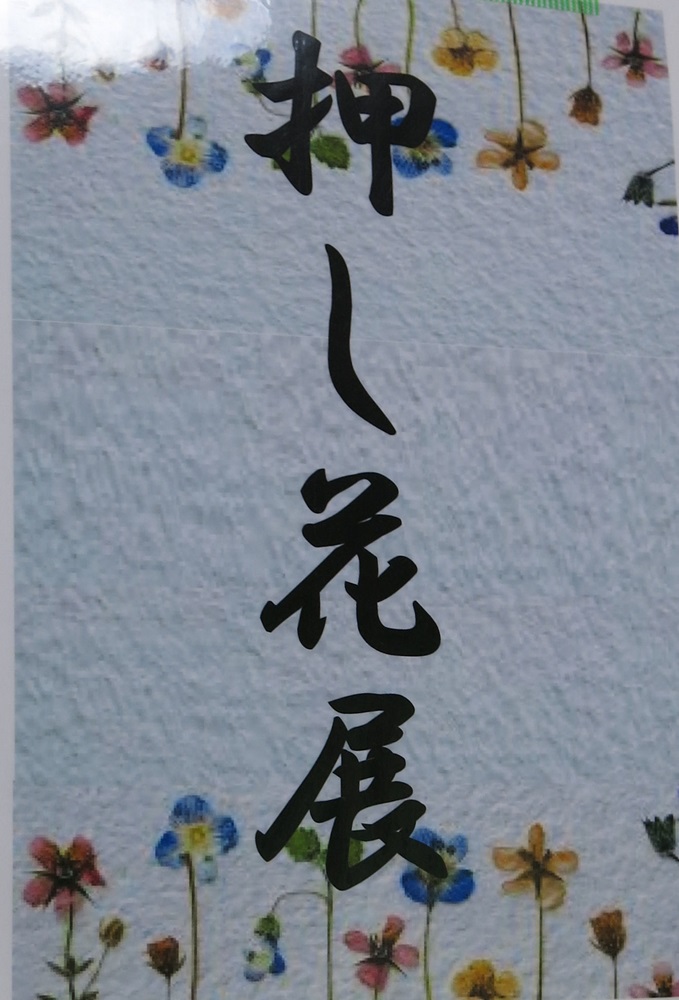 押し花展